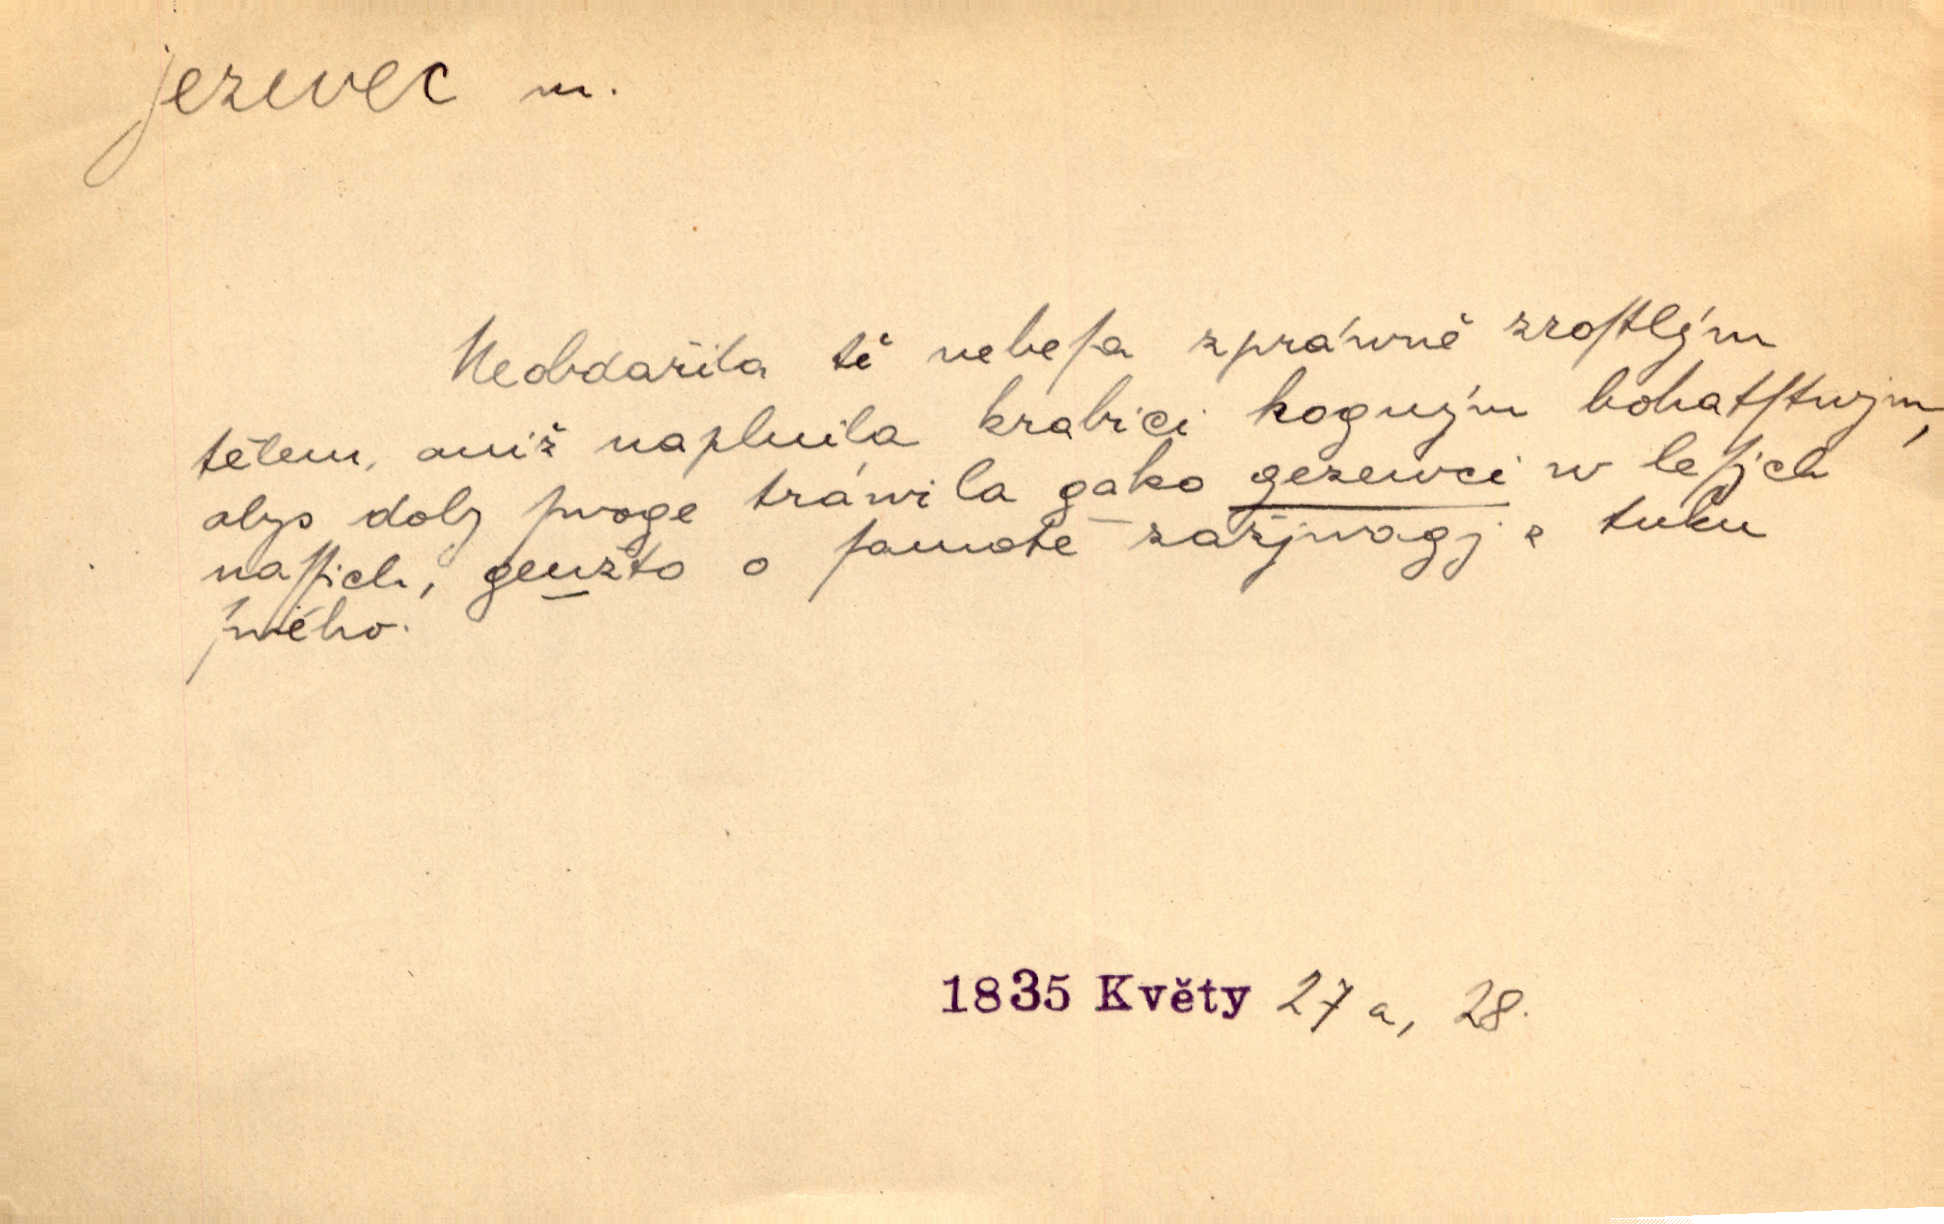 jezevec m.
Neobdařila tě nebeſa zpráwně zroſtlým
tělem, aniž naplnila krabici hogným bohatſtwjm,
abys doby ſwoge tráwila gako gezewci w leſjch
naſſich, genžto o ſamotě zažjwagj z tuku
ſwého.
1835 Květy 27 a, 28.